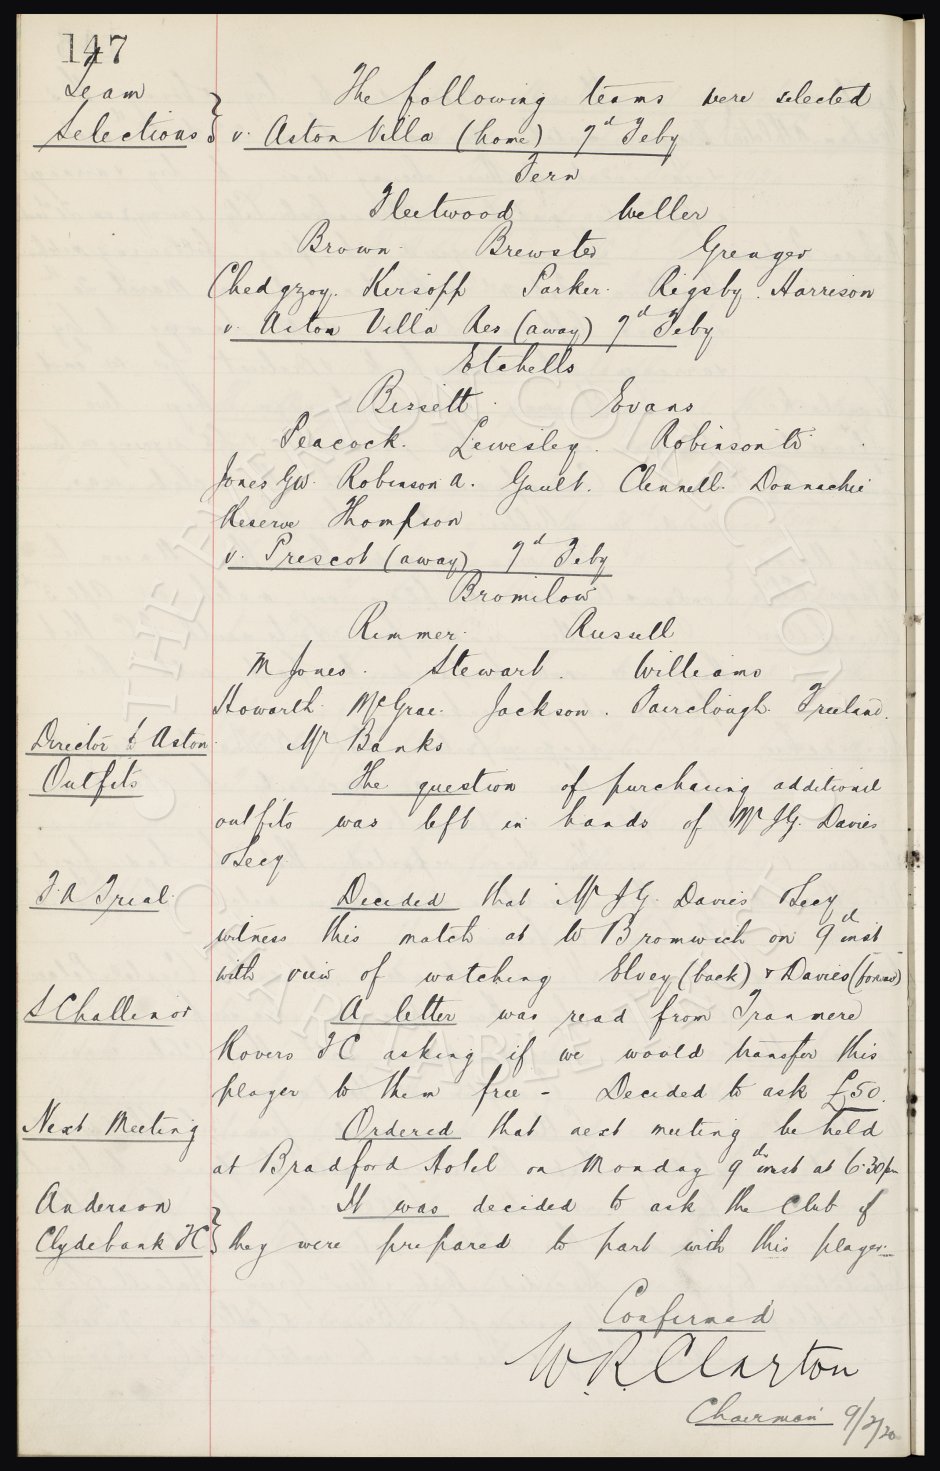 147
Team
Selections
The following teams were selected
v. Aston Villa (home) 7d Feby
Fern
Fleetwood Weller
Brown Brewster Grenyer
Chedgzoy. Kirsopp Parker. Rigsby. Harrison
v. Aston Villa Res (away) 7d Feby
Etchells
Bissett. Evans
Peacock. Lievesley. Robinson W
Jones GW. Robinson A. Gault. Clennell. Donnachie
Reserve Thompson
v. Prescot (away) 7d Feby
Bromilow
Rimmer. Russell
M Jones. Stewart. Williams
Howarth. McGrae. Jackson. Fairclough. Freeland.
Director to Aston
Mr Banks
Outfits
The question of purchasing additional
outfits was left in hands of Mr JG. Davies
& Secy
F.A Trial
Decided that Mr JG. Davies & Secy
witness this match at W Bromwich on 9th inst
with view of watching Elvey (back) & Davies (forwd)
S Challinor
A letter was read from Tranmere
Rovers FC asking if we would transfer this
player to them free - Decided to ask £50.
Next Meeting
Ordered that next meeting be held
at Bradford Hotel on Monday 9th inst at 6.30pm
Anderson
Clydebank FC
It was decided to ask the Club if
they were prepared to part with this player.
Confirmed
W.R. Clayton
Chairman 9/2/20
THE EVERTON COLLECTION
CHARITABLE TRUST